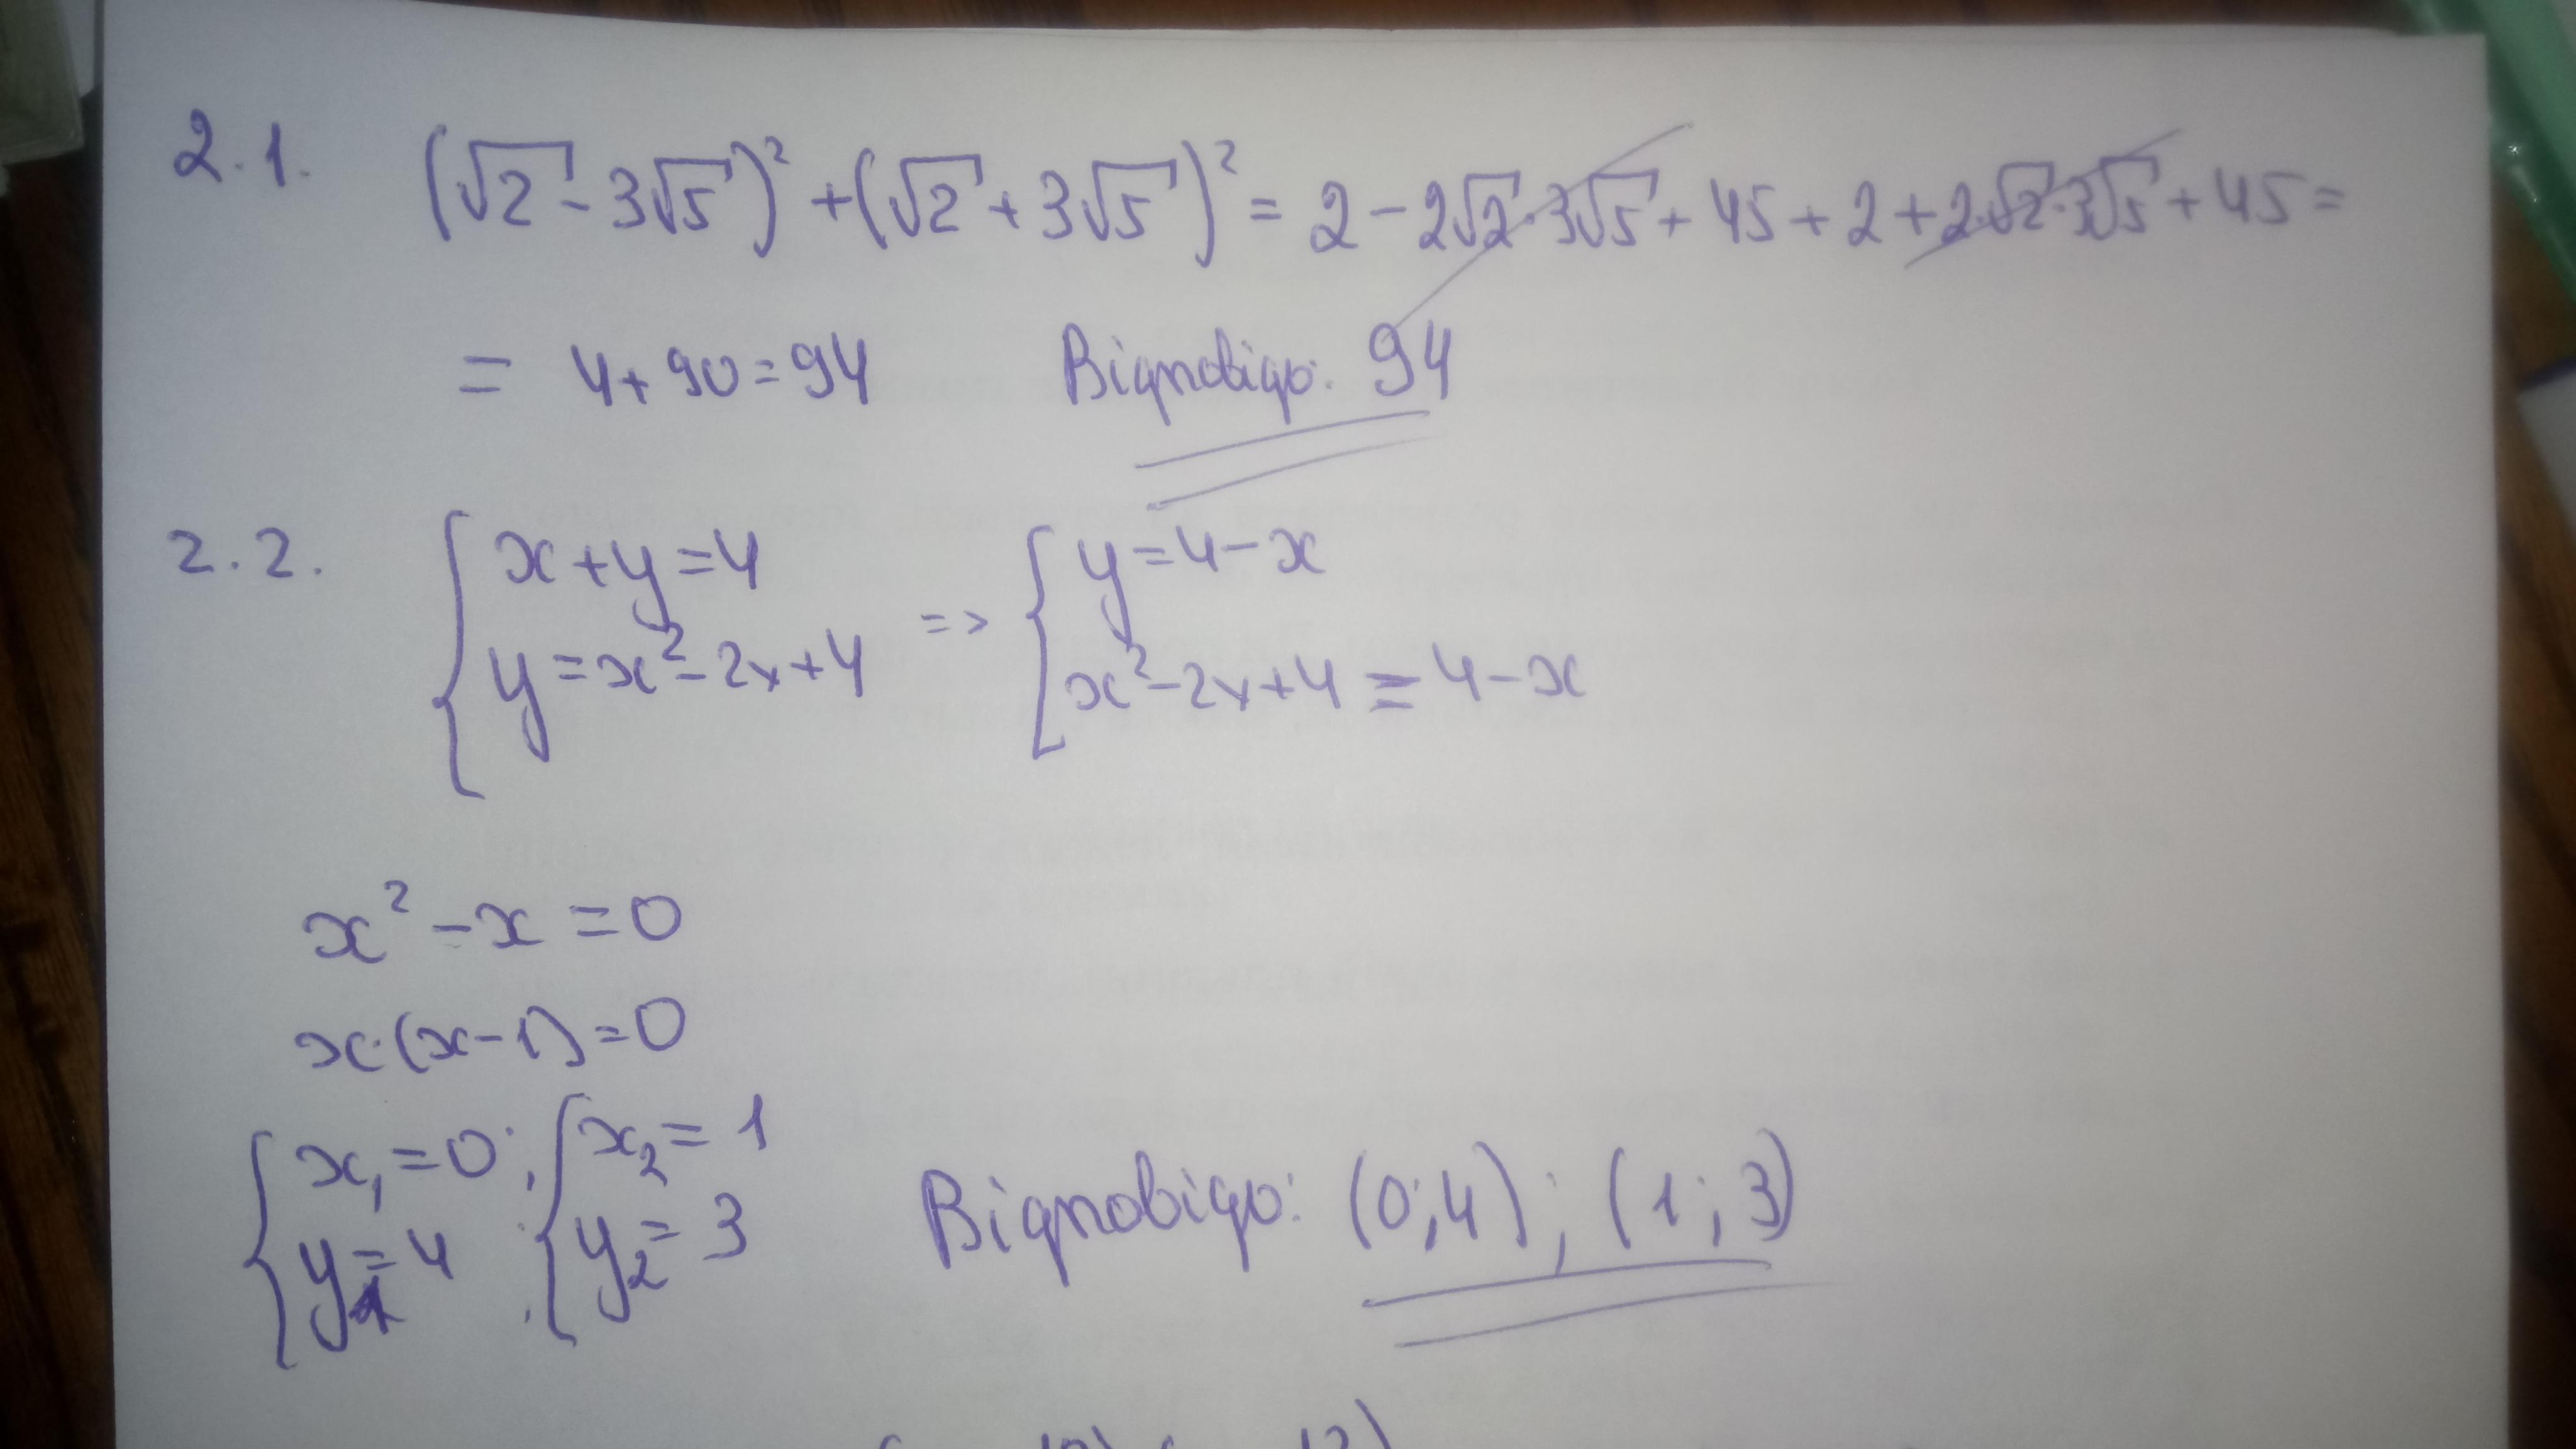 2.1. (√2 - 3√5)² + (√2 + 3√5)² = 2 - 2√2 · 3√5 + 45 + 2 + 2·√2·3√5 + 45 =
= 4 + 90 = 94 Відповідь: 94
2.2. { x + y = 4 => { y = 4 - x
y = x² - 2x + 4 x² - 2x + 4 = 4 - x
x² - x = 0
x·(x - 1) = 0
{ x₁ = 0; { x₂ = 1
y₁ = 4 y₂ = 3 Відповідь: (0; 4); (1; 3)